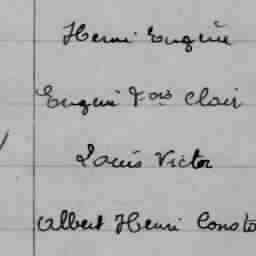 Henri Eugène
Eugène Fois Clair
Louis Victor
Albert Henri Consta